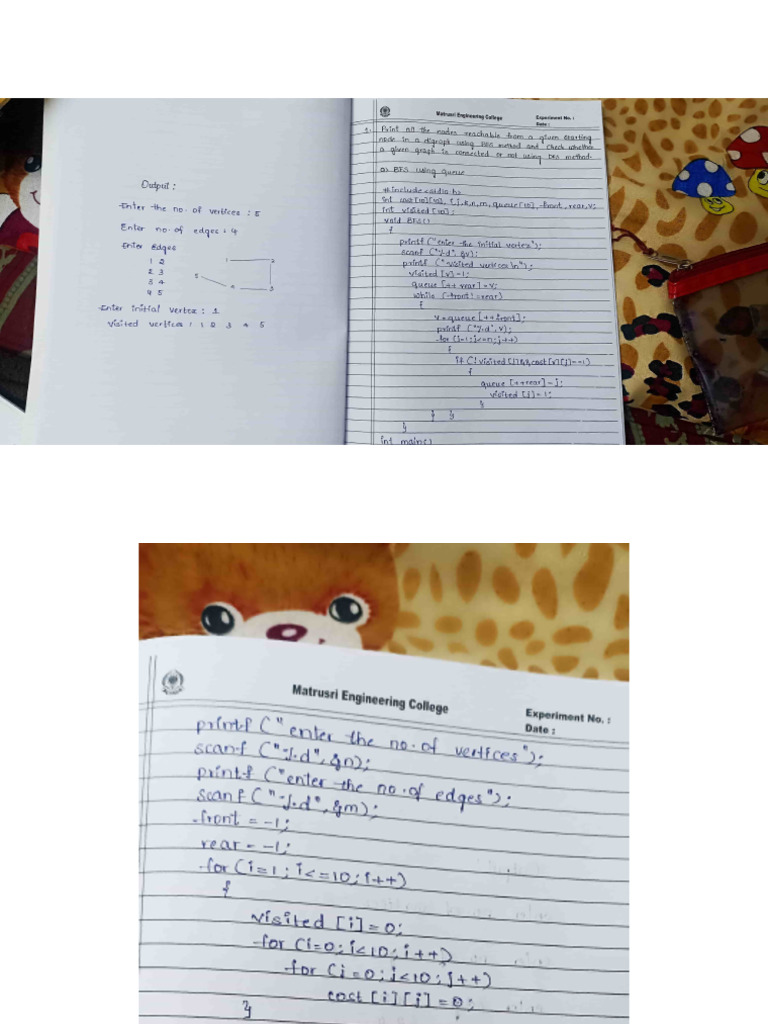 Output:
Enter the no. of vertices : 5
Enter no. of edges : 4
Enter Edges
1 2
2 3
3 4
4 5
1 2
5 4 3
Enter initial vertex : 1
visited vertices : 1 2 3 4 5
Matrusri Engineering College
Experiment No. :
Date :
Print all the nodes reachable from a given starting
node in a digraph using BFS method and check whether
a given graph is connected or not using DFS method.
a) BFS using queue
#include<stdio.h>
int cost[10][10], i,j,k,n,m, queue[10], front, rear, v;
int visited [10];
void BFS()
{
printf ("enter the initial vertex");
scanf ("%d", &v);
printf ("visited vertices \n");
visited [v]=1;
queue [++ rear] = v;
while (front! = rear)
{
v = queue [++front];
printf ("%d", v);
for (j=1; j<=n; j++)
{
if (!visited [j] && cost[v][j]==1)
{
queue [++rear]=j;
visited [j]=1;
}
} }
}
int main()
Matrusri Engineering College
Experiment No. :
Date :
printf ("enter the no. of vertices");
scanf ("%d", &n);
printf ("enter the no. of edges");
scanf ("%d", &m);
front = -1;
rear = -1;
for (i=1; i<=10; i++)
{
visited [i]=0;
for (i=0; i<10; i++)
for (j=0; j<10; j++)
cost [i][j]=0;
}